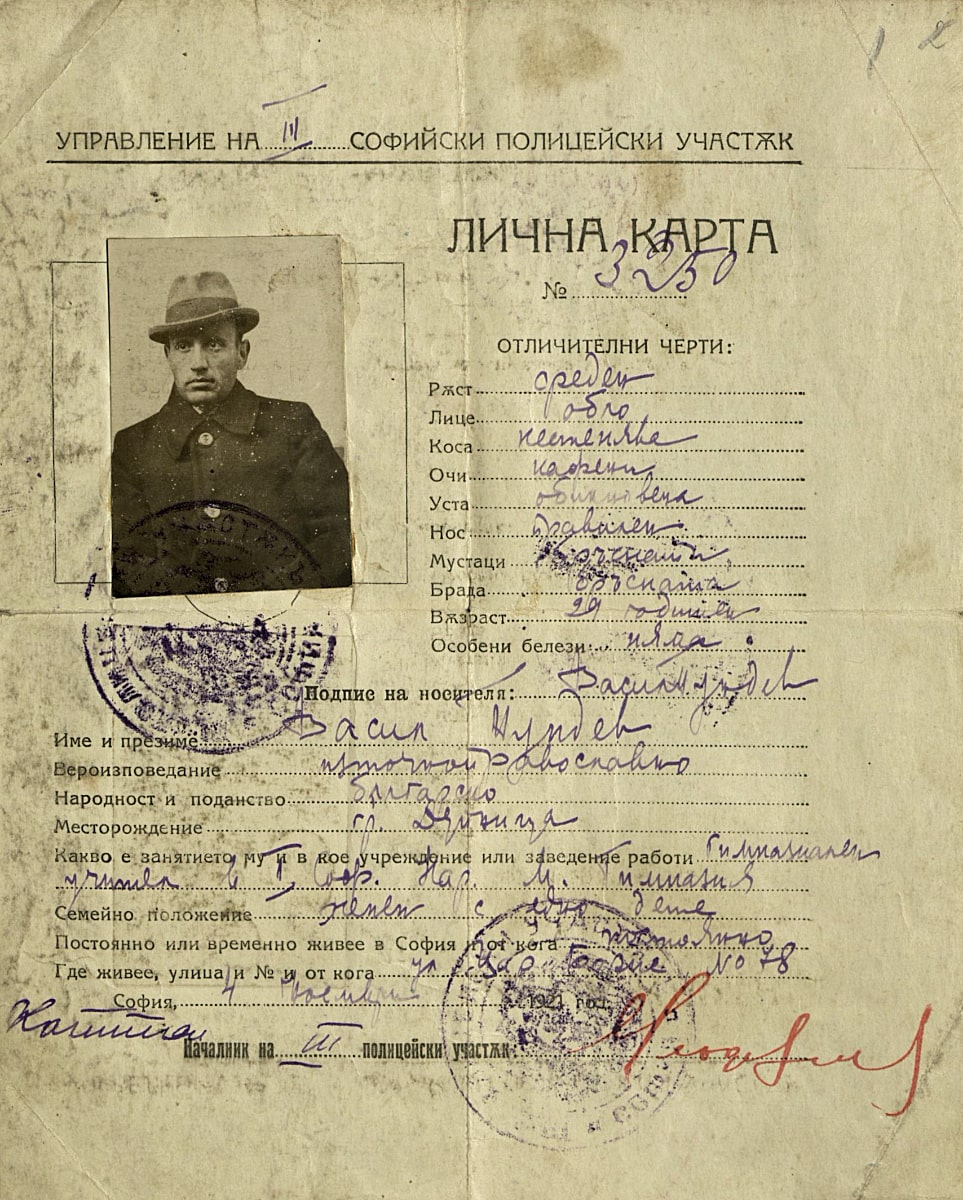 1 2
УПРАВЛЕНИЕ НА III СОФИЙСКИ ПОЛИЦЕЙСКИ УЧАСТѪК
ЛИЧНА КАРТА
№ 3250
ОТЛИЧИТЕЛНИ ЧЕРТИ:
Рѫст среден
Лице обло
Коса кестенява
Очи кафени
Уста обикновена
Нос правилен
Мустаци бръснати
Брада бръсната
Вѫзраст 29 годишен
Особени белези няма
Подпис на носителя: Василъ
Име и презиме Васил
Вероизповедание източноправославно
Народност и поданство българско
Месторождение гр. Дупница
Какво е занятието му и в кое учреждение или заведение работи Гимназиален
учител в I Соф. Нар. М. Гимназия
Семейно положение женен с едно дете
Постоянно или временно живее в София и от кога постоянно
Где живее, улица и № и от кога ул. Цар Борис No 78
София, 4 Ноември 1921 год.
Началник на III полицейски участѫк: